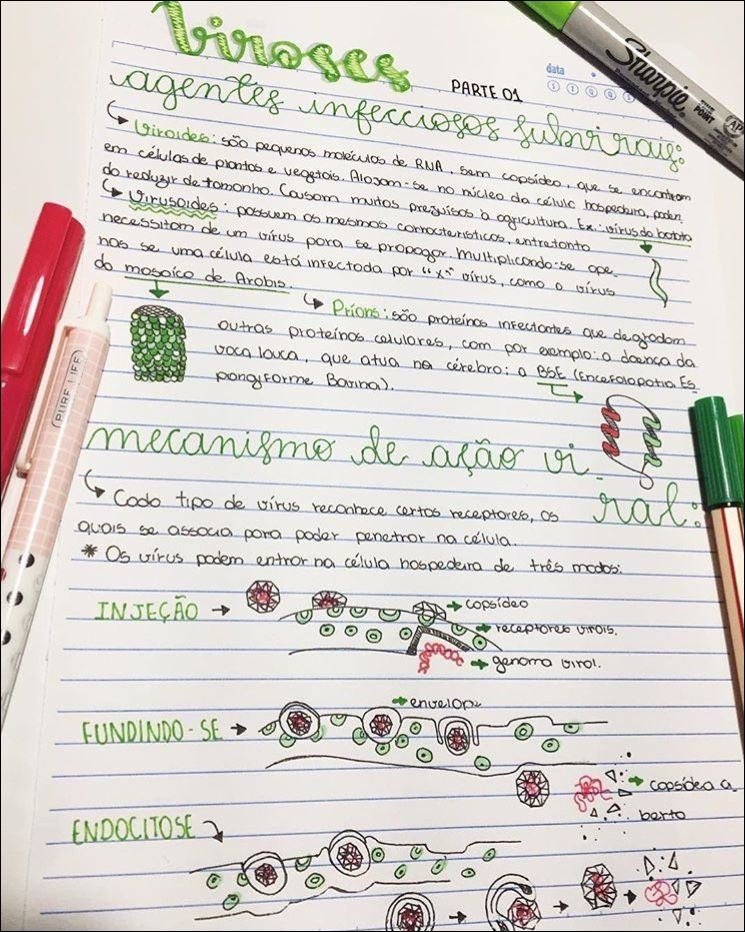 viroses
PARTE 01
data
agentes infecciosos subvirais:
Viroides: são pequenas moléculas de RNA, sem capsídeo, que se encontram
em células de plantas e vegetais. Alojam-se no núcleo da célula hospedeira, poden
do reduzir de tamanho. Causam muitos prejuísos à agricultura. Ex.: vírus da batata
Virusoides: possuem as mesmas características, entretanto
necessitam de um vírus para se propagar. Multiplicando-se ape-
nas se uma célula está infectada por "x" vírus, como o vírus
do mosaico de Arabis.
Príons: são proteínas infectantes que degradam
outras proteínas celulares, com por exemplo: a doença da
vaca louca, que atua no cérebro: a BSE (Encefalopatia Es
pongiforme Bovina).
mecanismo de ação vi-
ral:
Cada tipo de vírus reconhece certos receptores, os
quais se associa para poder penetrar na célula.
* Os vírus podem entrar na célula hospedeira de três modos:
INJEÇÃO
capsídeo
receptores virais.
genoma viral.
envelope
FUNDINDO-SE
capsídeo a_
berto
ENDOCITOSE
Sharpie
POINT
AP
PURE LIFE